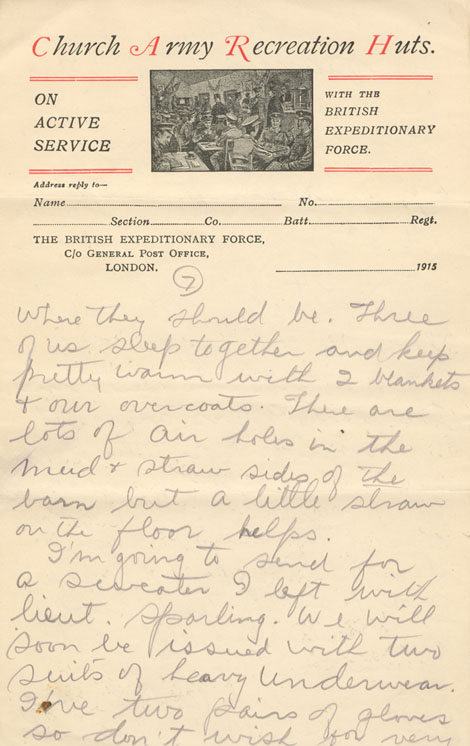 Church Army Recreation Huts.
ON
ACTIVE
SERVICE
WITH THE
BRITISH
EXPEDITIONARY
FORCE.
Address reply to—
Name No.
Section Co. Batt. Regt.
THE BRITISH EXPEDITIONARY FORCE,
C/o GENERAL POST OFFICE,
LONDON.
1915
7
where they should be. Three
of us sleep together and keep
pretty warm with 2 blankets
+ our overcoats. There are
lots of air holes in the
mud + straw sides of the
barn but a little straw
on the floor helps.
I'm going to send for
a sweater I left with
lieut. Sparling. We will
soon be issued with two
suits of heavy underwear.
I've two pairs of gloves
so don't wish for very